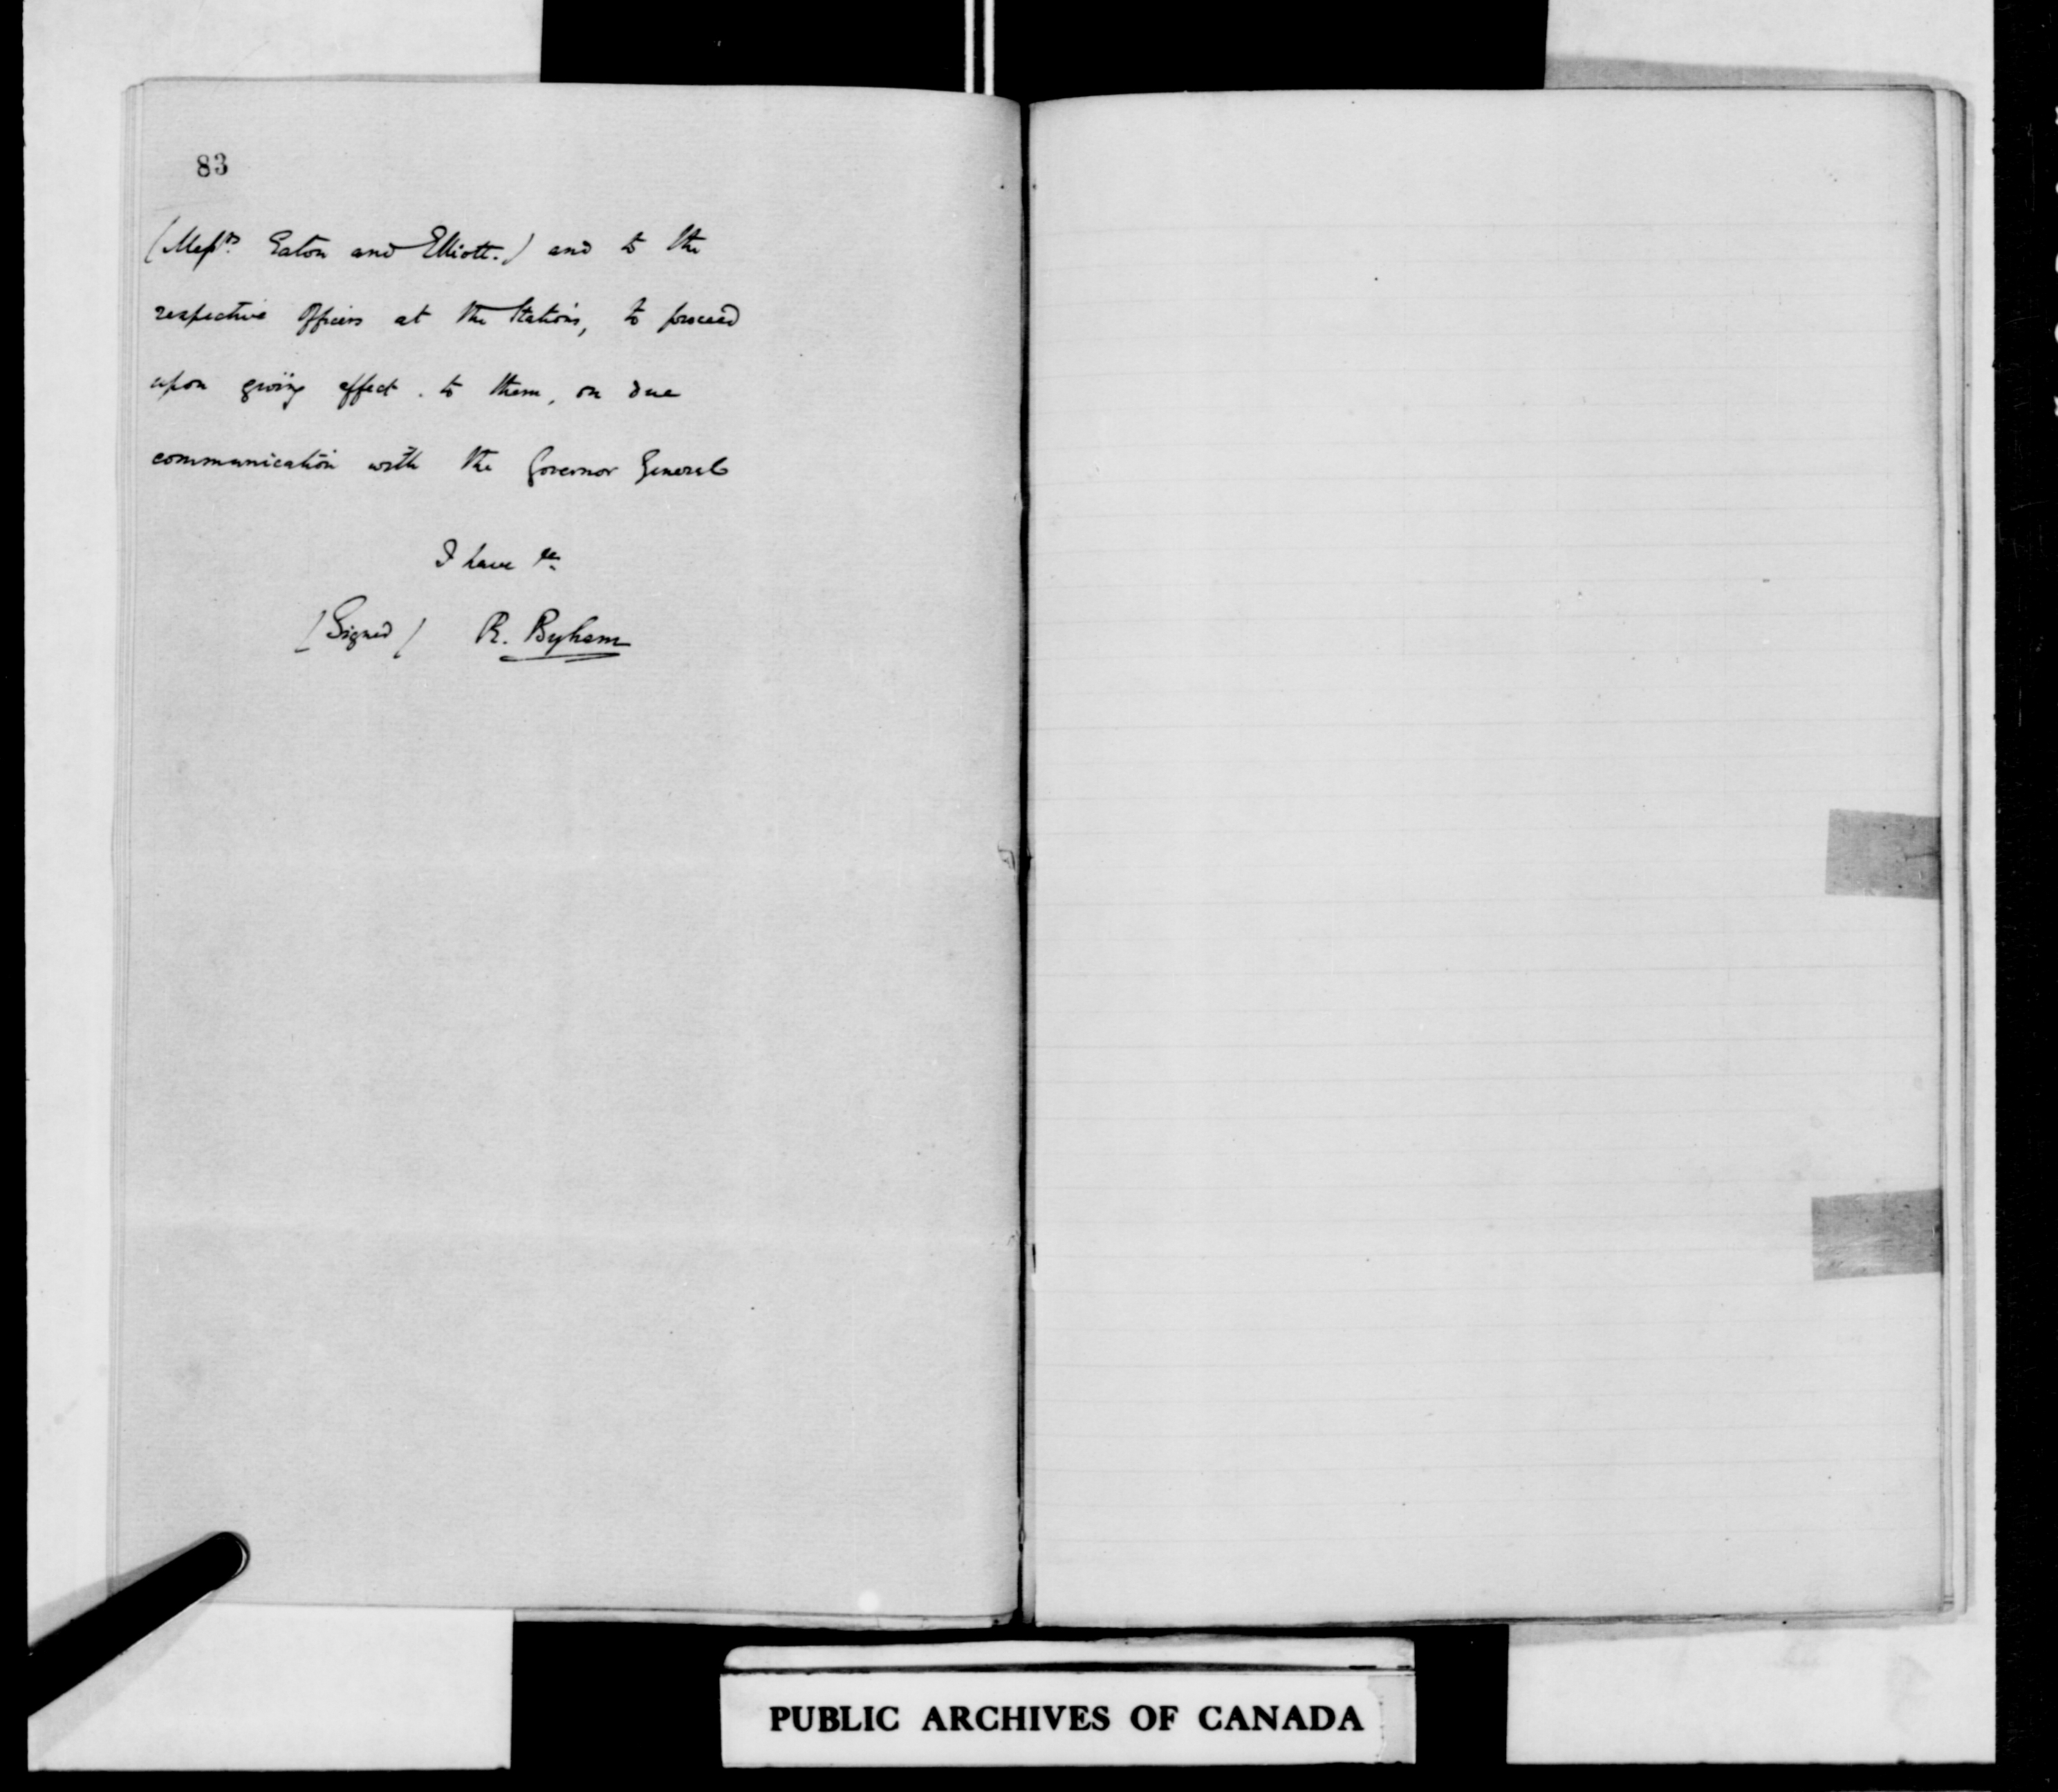 83
(Mess^rs Eaton and Elliott.) and to the
respective Officers at the Stations, to proceed
upon giving effect to them, on due
communication with the Governor General
I have &c.
(Signed) R. Byham
PUBLIC ARCHIVES OF CANADA